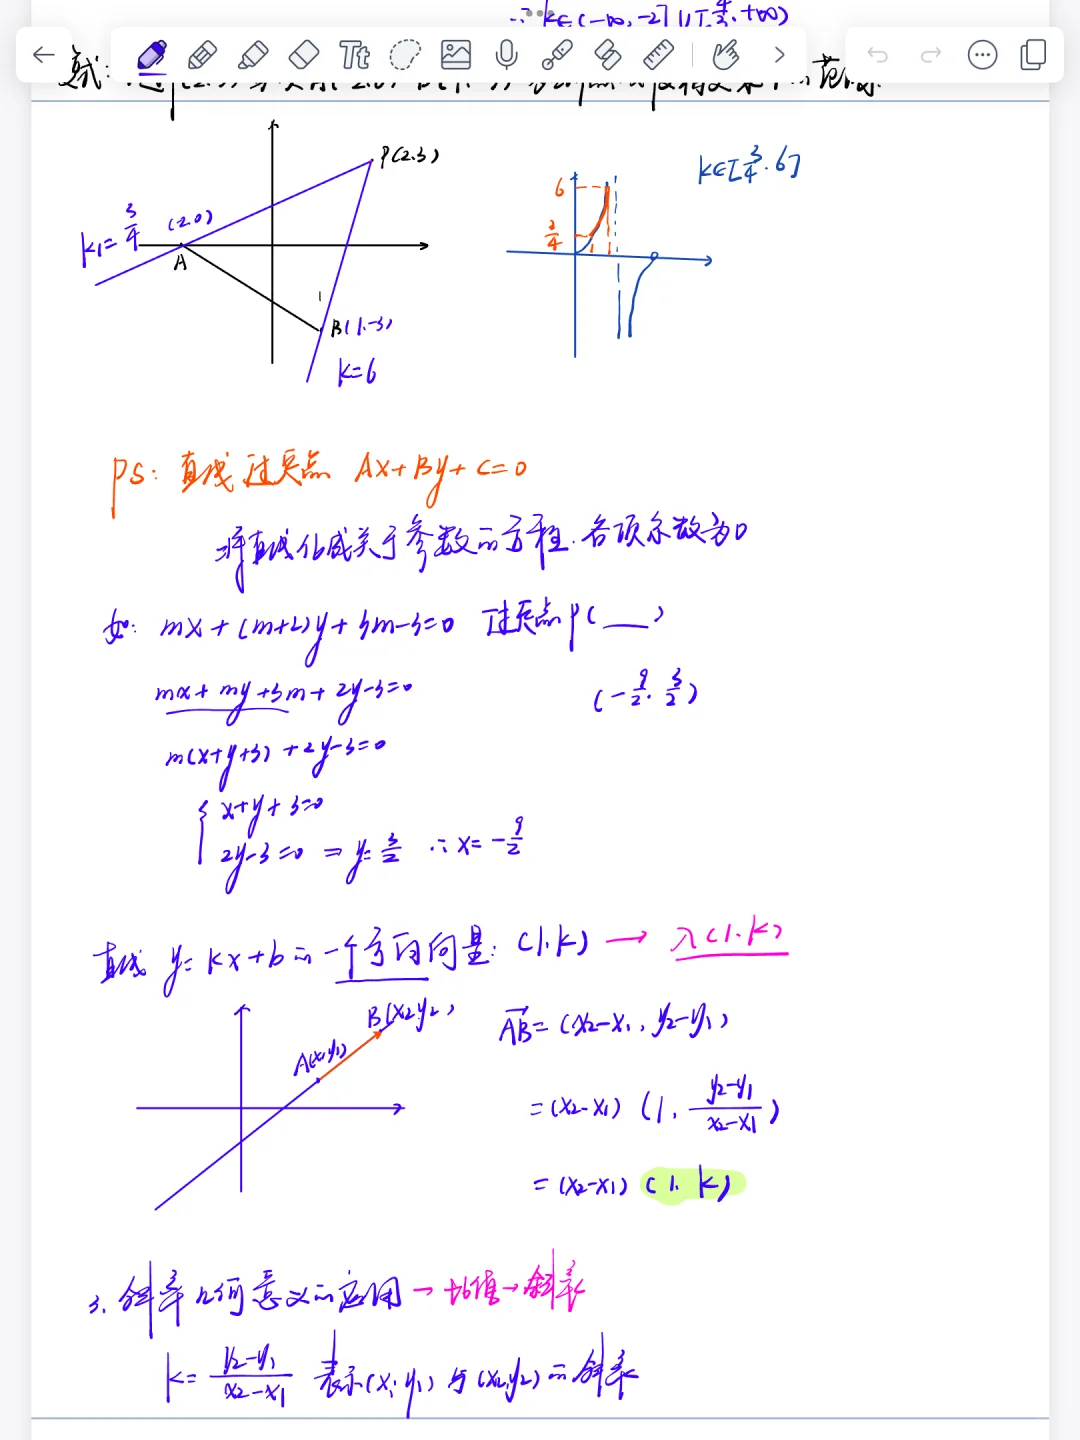 ∴ k∈(-∞,-2]∪[4/3,+∞)
Tt
P(2.3)
k∈[3/4.6]
6
k₁=3/4
(2.0)
3/4
A
B(1.-3)
k=6
PS: 直线过定点 Ax+By+C=0
将直线化成关于参数的方程.各项系数为0
如: mx+(m+2)y+3m-3=0 过定点P(__)
mx+my+3m+2y-3=0
(-9/2.3/2)
m(x+y+3)+2y-3=0
{x+y+3=0
2y-3=0 ⇒ y=3/2 ∴x=-9/2
直线 y=kx+b的一个方向向量: (1.k) → λ(1.k)
B(x₂y₂)
A(x₁y₁)
AB=(x₂-x₁, y₂-y₁)
=(x₂-x₁)(1. (y₂-y₁)/(x₂-x₁))
=(x₂-x₁)(1.k)
3. 斜率几何意义的应用→比值→斜率
k=(y₂-y₁)/(x₂-x₁) 表示(x₁.y₁)与(x₂,y₂)的斜率